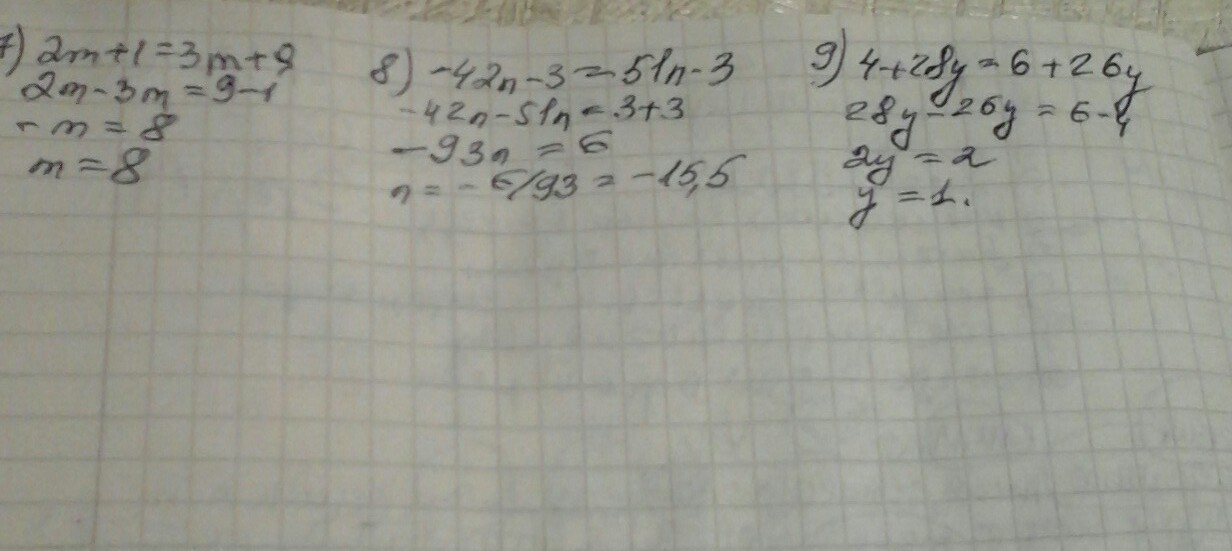 7) 2m+1=3m+9
2m-3m=9-1
-m=8
m=8
8) -42n-3=51n-3
-42n-51n=3+3
-93n=6
n=-6/93=-15,5
9) 4+28y=6+26y
28y-26y=6-4
2y=2
y=1.